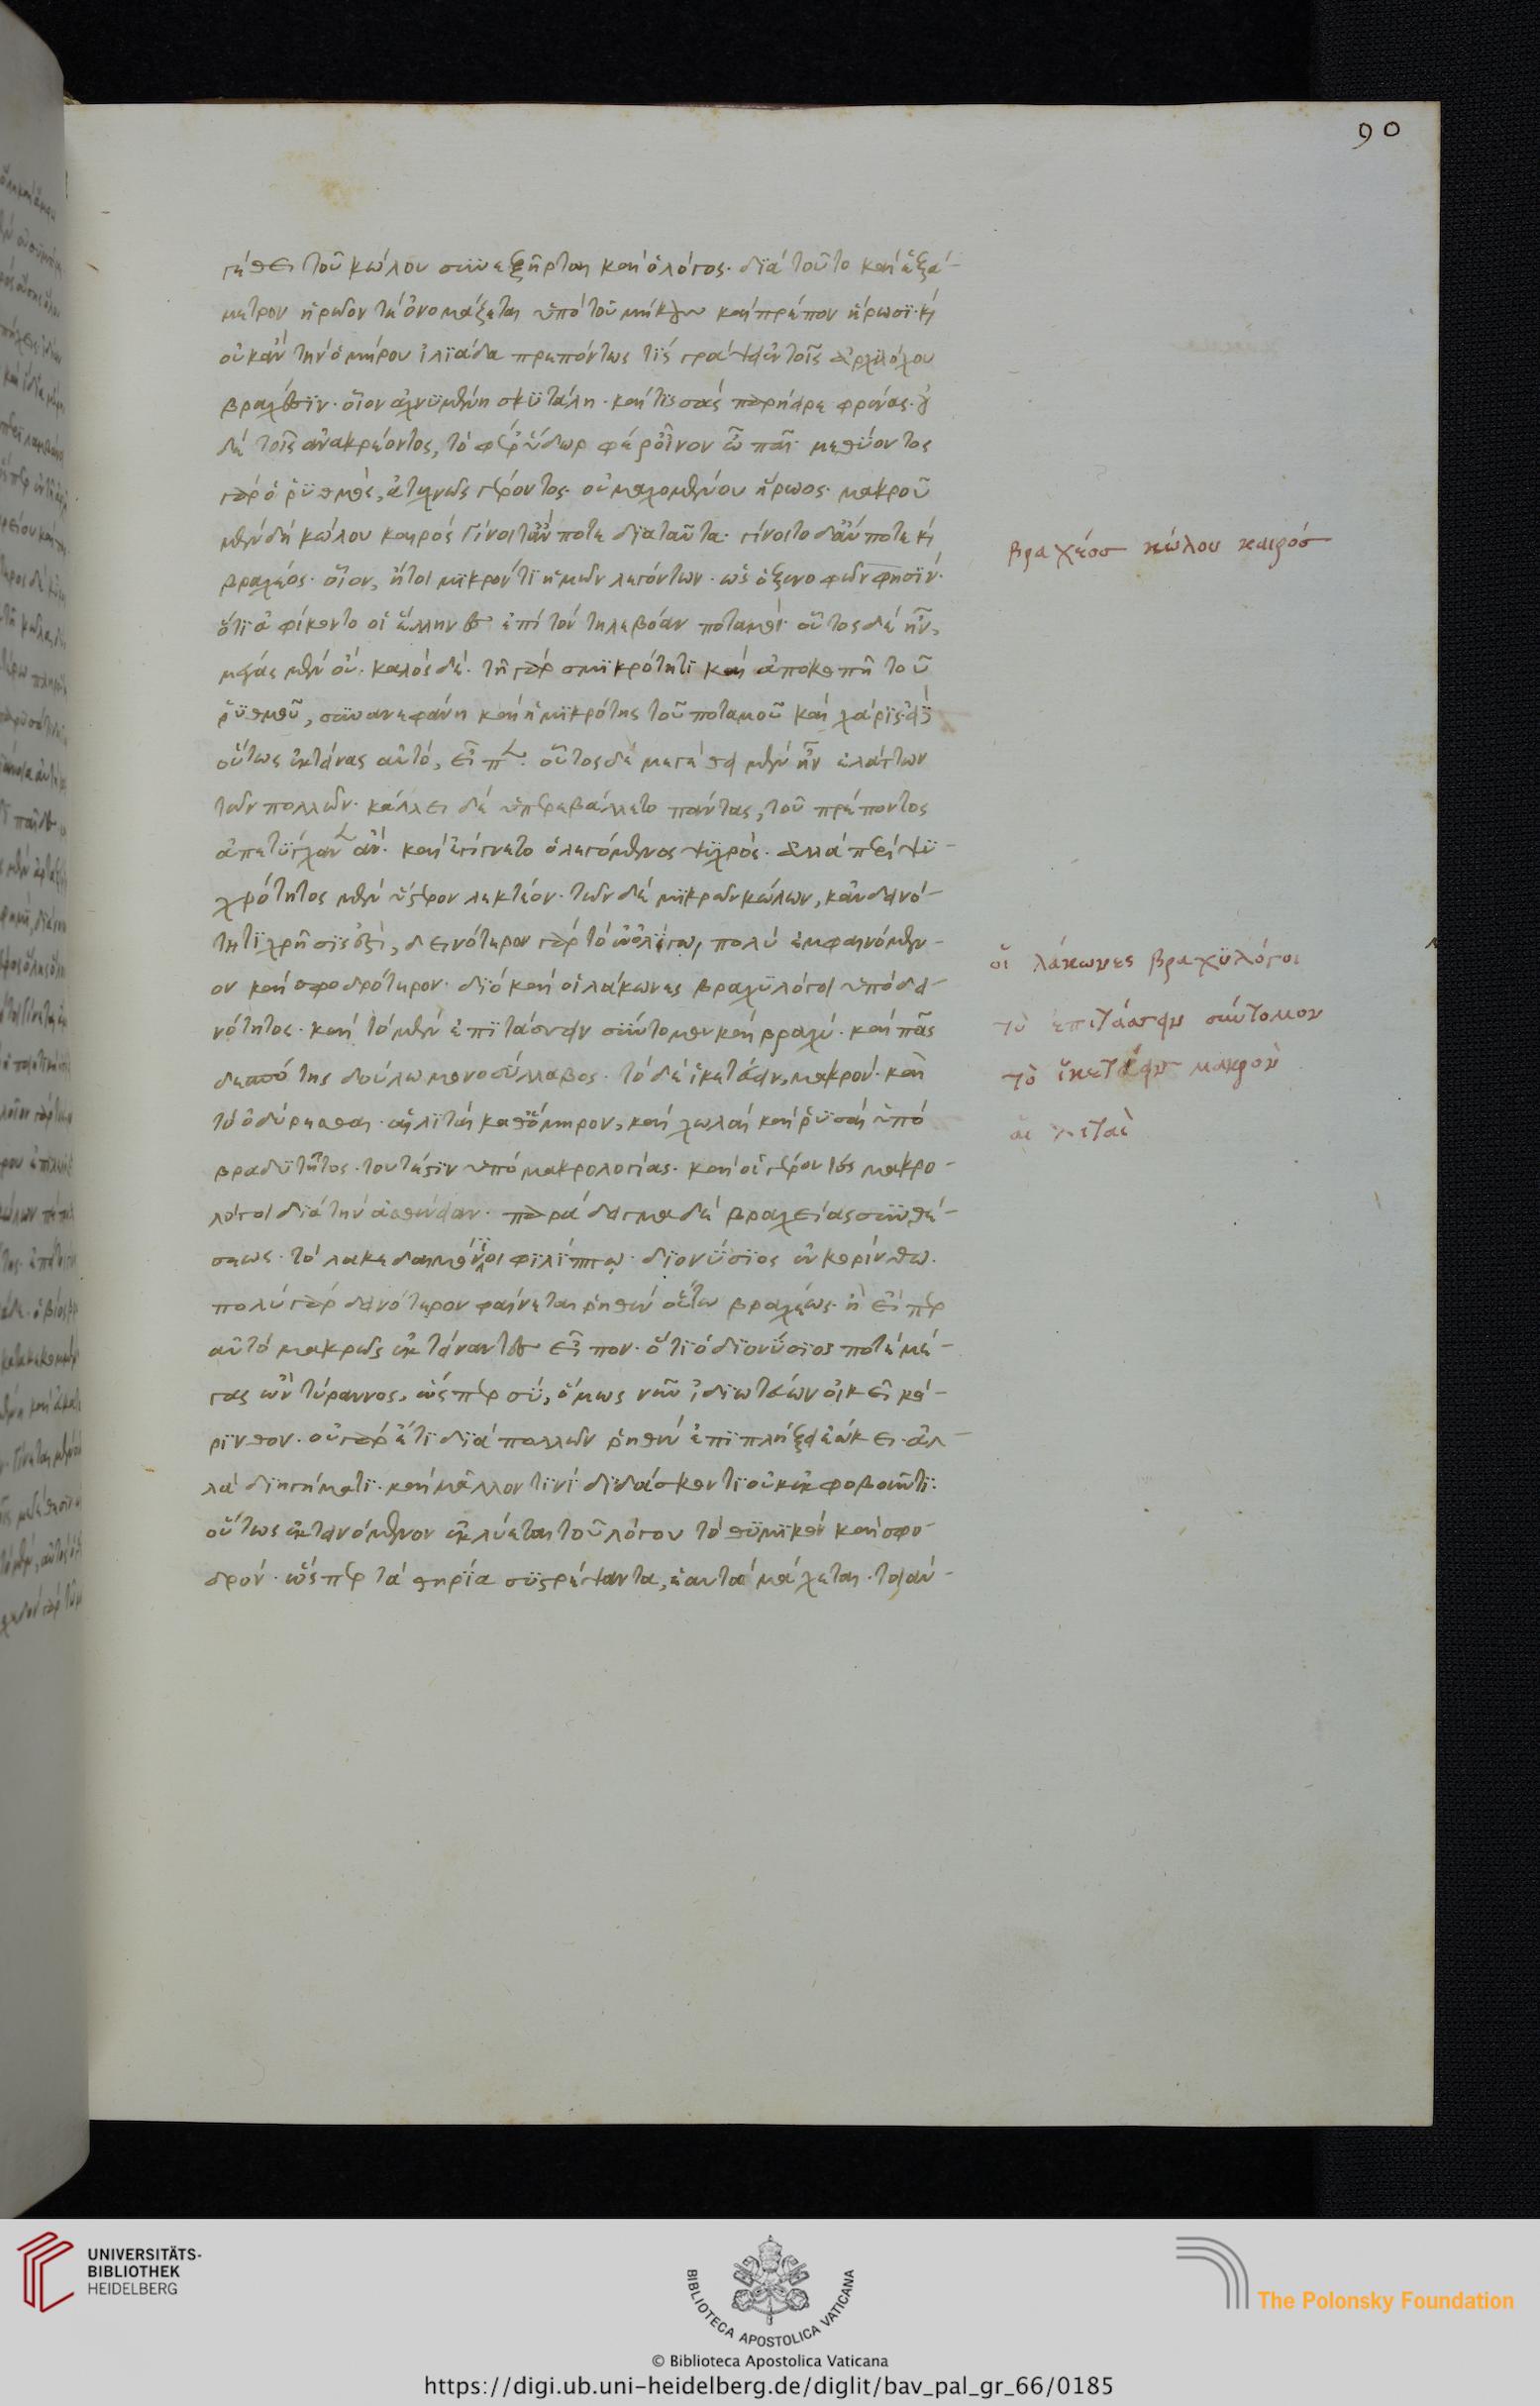 90
γέθει τοῦ κώλου συνεξῆρται καὶ ὁ λόγος· διὰ τοῦτο καὶ ἑξά-
μετρον ἡρῶόν τε ὀνομάζεται ὑπὸ τοῦ μήκους καὶ πρέπον ἥρωσι· καὶ
οὐκ ἂν τὴν ὁμήρου ἰλιάδα πρεπόντως τὶς γράψειεν τοῖς ἀρχιλόχου
βραχέσιν· οἷον ἀχνυμένη σκυτάλη· καὶ τίς σὰς παρήειρε φρένας· οὐ
δὲ τοῖς ἀνακρέοντος, τὸ φέρ' ὕδωρ φέρ' οἶνον ὦ παῖ· μεθύοντος
γὰρ ὁ ῥυθμὸς, ἀτεχνῶς γέροντος· οὐ μαχομένου ἥρωος· μακροῦ
μὲν δὴ κώλου καιρὸς γίνοιτ' ἄν ποτε διὰ ταῦτα· γίνοιτο δ' ἄν ποτε καὶ
βραχέος· οἷον, ἤτοι μικρόν τι ἡμῶν λεγόντων· ὡς ὁ ξενοφῶν φησὶν·
ὅτι ἀφίκοντο οἱ ἕλληνες ἐπὶ τὸν τηλεβόαν ποταμόν· οὗτος δὲ ἦν,
μέγας μὲν οὔ· καλὸς δέ· τῇ γὰρ σμικρότητι καὶ ἀποκοπῇ τοῦ
ῥυθμοῦ, συνανεφάνη καὶ ἡ μικρότης τοῦ ποταμοῦ καὶ χάρις· εἰ δὲ
οὕτως ἐκτείνας αὐτὸ, εἶπεν· οὗτος δὲ μεγέθει μὲν ἦν ἐλάττων
τῶν πολλῶν· κάλλει δὲ ὑπερεβάλλετο πάντας, τοῦ πρέποντος
ἀπετύγχανεν ἄν· καὶ ἐγίγνετο ὁ λεγόμενος ψυχρός· ἀλλὰ περὶ ψυ-
χρότητος μὲν ὕστερον λεκτέον· τῶν δὲ μικρῶν κώλων, κἀν δεινό-
τητι χρῆσίς ἐστι, δεινότερον γὰρ τὸ ἐν ὀλίγῳ, πολὺ ἐμφαινόμεν-
ον καὶ σφοδρότερον· διὸ καὶ οἱ λάκωνες βραχυλόγοι ὑπὸ δει-
νότητος· καὶ τὸ μὲν ἐπιτάσσειν σύντομον καὶ βραχύ· καὶ πᾶς
δεσπότης δούλῳ μονοσύλλαβος· τὸ δὲ ἱκετεύειν, μακρόν· καὶ
τὸ ὀδύρεσθαι· αἱ λιταὶ καθ' ὅμηρον, καὶ χωλαὶ καὶ ῥυσαὶ ὑπὸ
βραδυτῆτος· τουτέστιν ὑπὸ μακρολογίας· καὶ οἱ γέροντες μακρο-
λόγοι διὰ τὴν ἀσθένειαν· παράδειγμα δὲ βραχείας συνθέ-
σεως· τὸ λακεδαιμόνιοι φιλίππῳ· διονύσιος ἐν κορίνθῳ.
πολὺ γὰρ δεινότερον φαίνεται ῥηθὲν οὕτω βραχέως· ἢ εἴπερ
αὐτὸ μακρῶς ἐκτείναντες εἶπον· ὅτι ὁ διονύσιος ποτὲ μέ-
γας ὢν τύραννος, ὥσπερ σύ, ὅμως νῦν ἰδιωτεύων οἰκεῖ κό-
ρινθον· οὐ γὰρ ἔτι διὰ πολλῶν ῥηθὲν ἐπιπλήξει ἐῴκει· ἀλ-
λὰ διηγήματι· καὶ μᾶλλόν τινι διδάσκοντι οὐκ ἐκφοβοῦντι·
οὕτως ἐκτεινόμενον ἐκλύεται τοῦ λόγου τὸ θυμικὸν καὶ σφο-
δρόν· ὥσπερ τὰ θηρία συστρέψαντα, ἑαυτὰ μάχεται· τοιαύ-
βραχέοσ κώλου καιρόσ
οἱ λάκωνες βραχυλόγοι
τὸ ἐπιτάσσειν σύντομον
τὸ ἱκετεύειν μακρὸν
αἱ λιταὶ
UNIVERSITÄTS-
BIBLIOTHEK
HEIDELBERG
BIBLIOTECA APOSTOLICA VATICANA
© Biblioteca Apostolica Vaticana
The Polonsky Foundation
https://digi.ub.uni-heidelberg.de/diglit/bav_pal_gr_66/0185